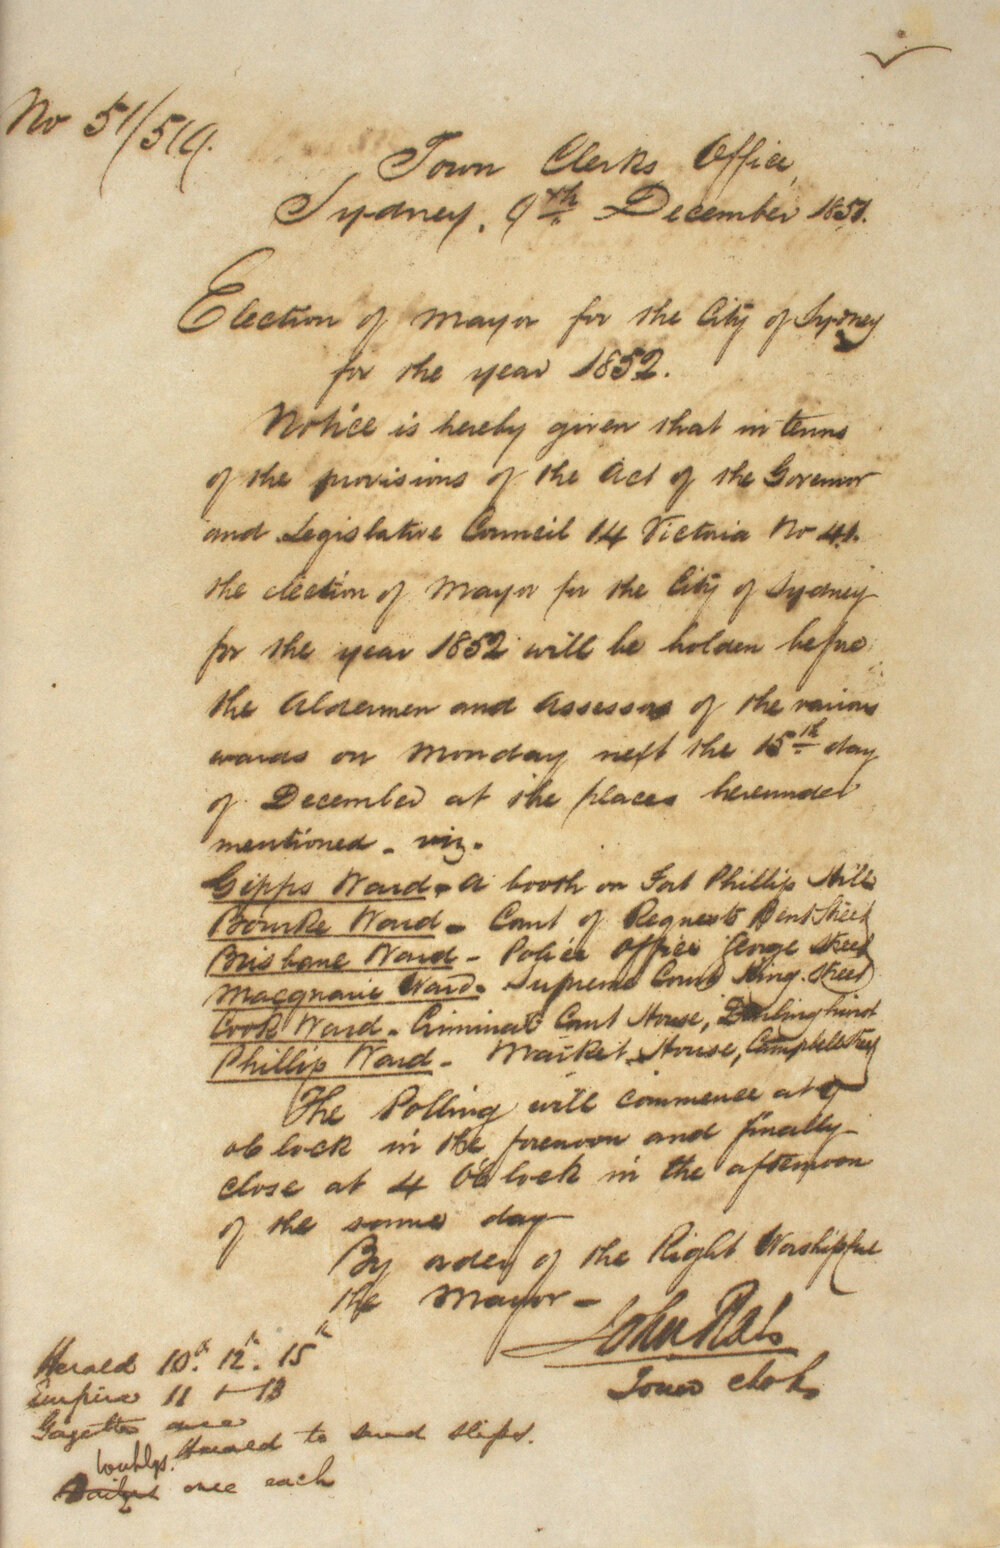 No 51/519.
Town Clerks Office,
Sydney, 9th December 1851.
Election of Mayor for the City of Sydney
for the year 1852.
Notice is hereby given that in terms
of the provisions of the Act of the Governor
and Legislative Council 14 Victoria No 41.
the election of Mayor for the City of Sydney
for the year 1852 will be holden before
the Aldermen and Assessors of the various
wards on Monday next the 15th day
of December at the places hereunder
mentioned - viz.
Gipps Ward - A booth on Fort Phillip Hill
Bourke Ward - Court of Requests Bent Street
Brisbane Ward - Police Office George Street
Macquarie Ward - Supreme Court King Street
Cook Ward - Criminal Court House, Darlinghurst
Phillip Ward - Market House, Campbell Street
The Polling will commence at 9
oClock in the forenoon and finally
close at 4 OClock in the afternoon
of the same day
By order of the Right Worshipful
the Mayor -
John Rae
Town Clerk
Herald 10th. 12th. 15th
Empire 11 & 13
Gazette once
Herald to send slips.
Weeklys.
once each